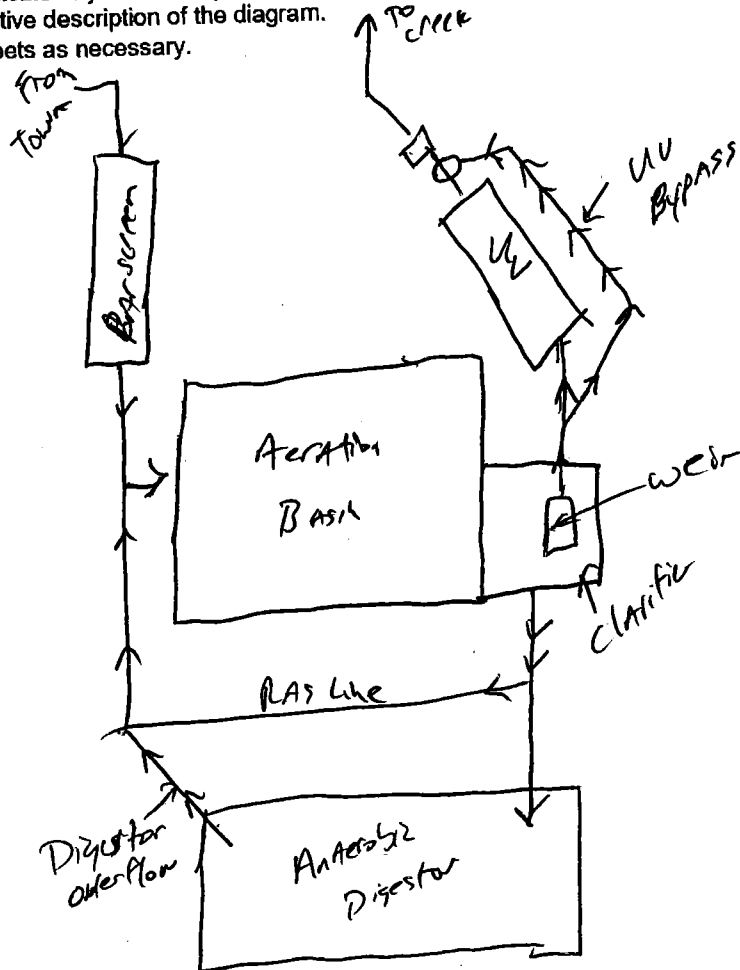 tive description of the diagram.
ets as necessary.
From
Town
To
creek
Barscreen
UV
Bypass
UV
Aeration
Basin
weir
Clarifier
RAS Line
Digestor
overflow
Anaerobic
Digestor